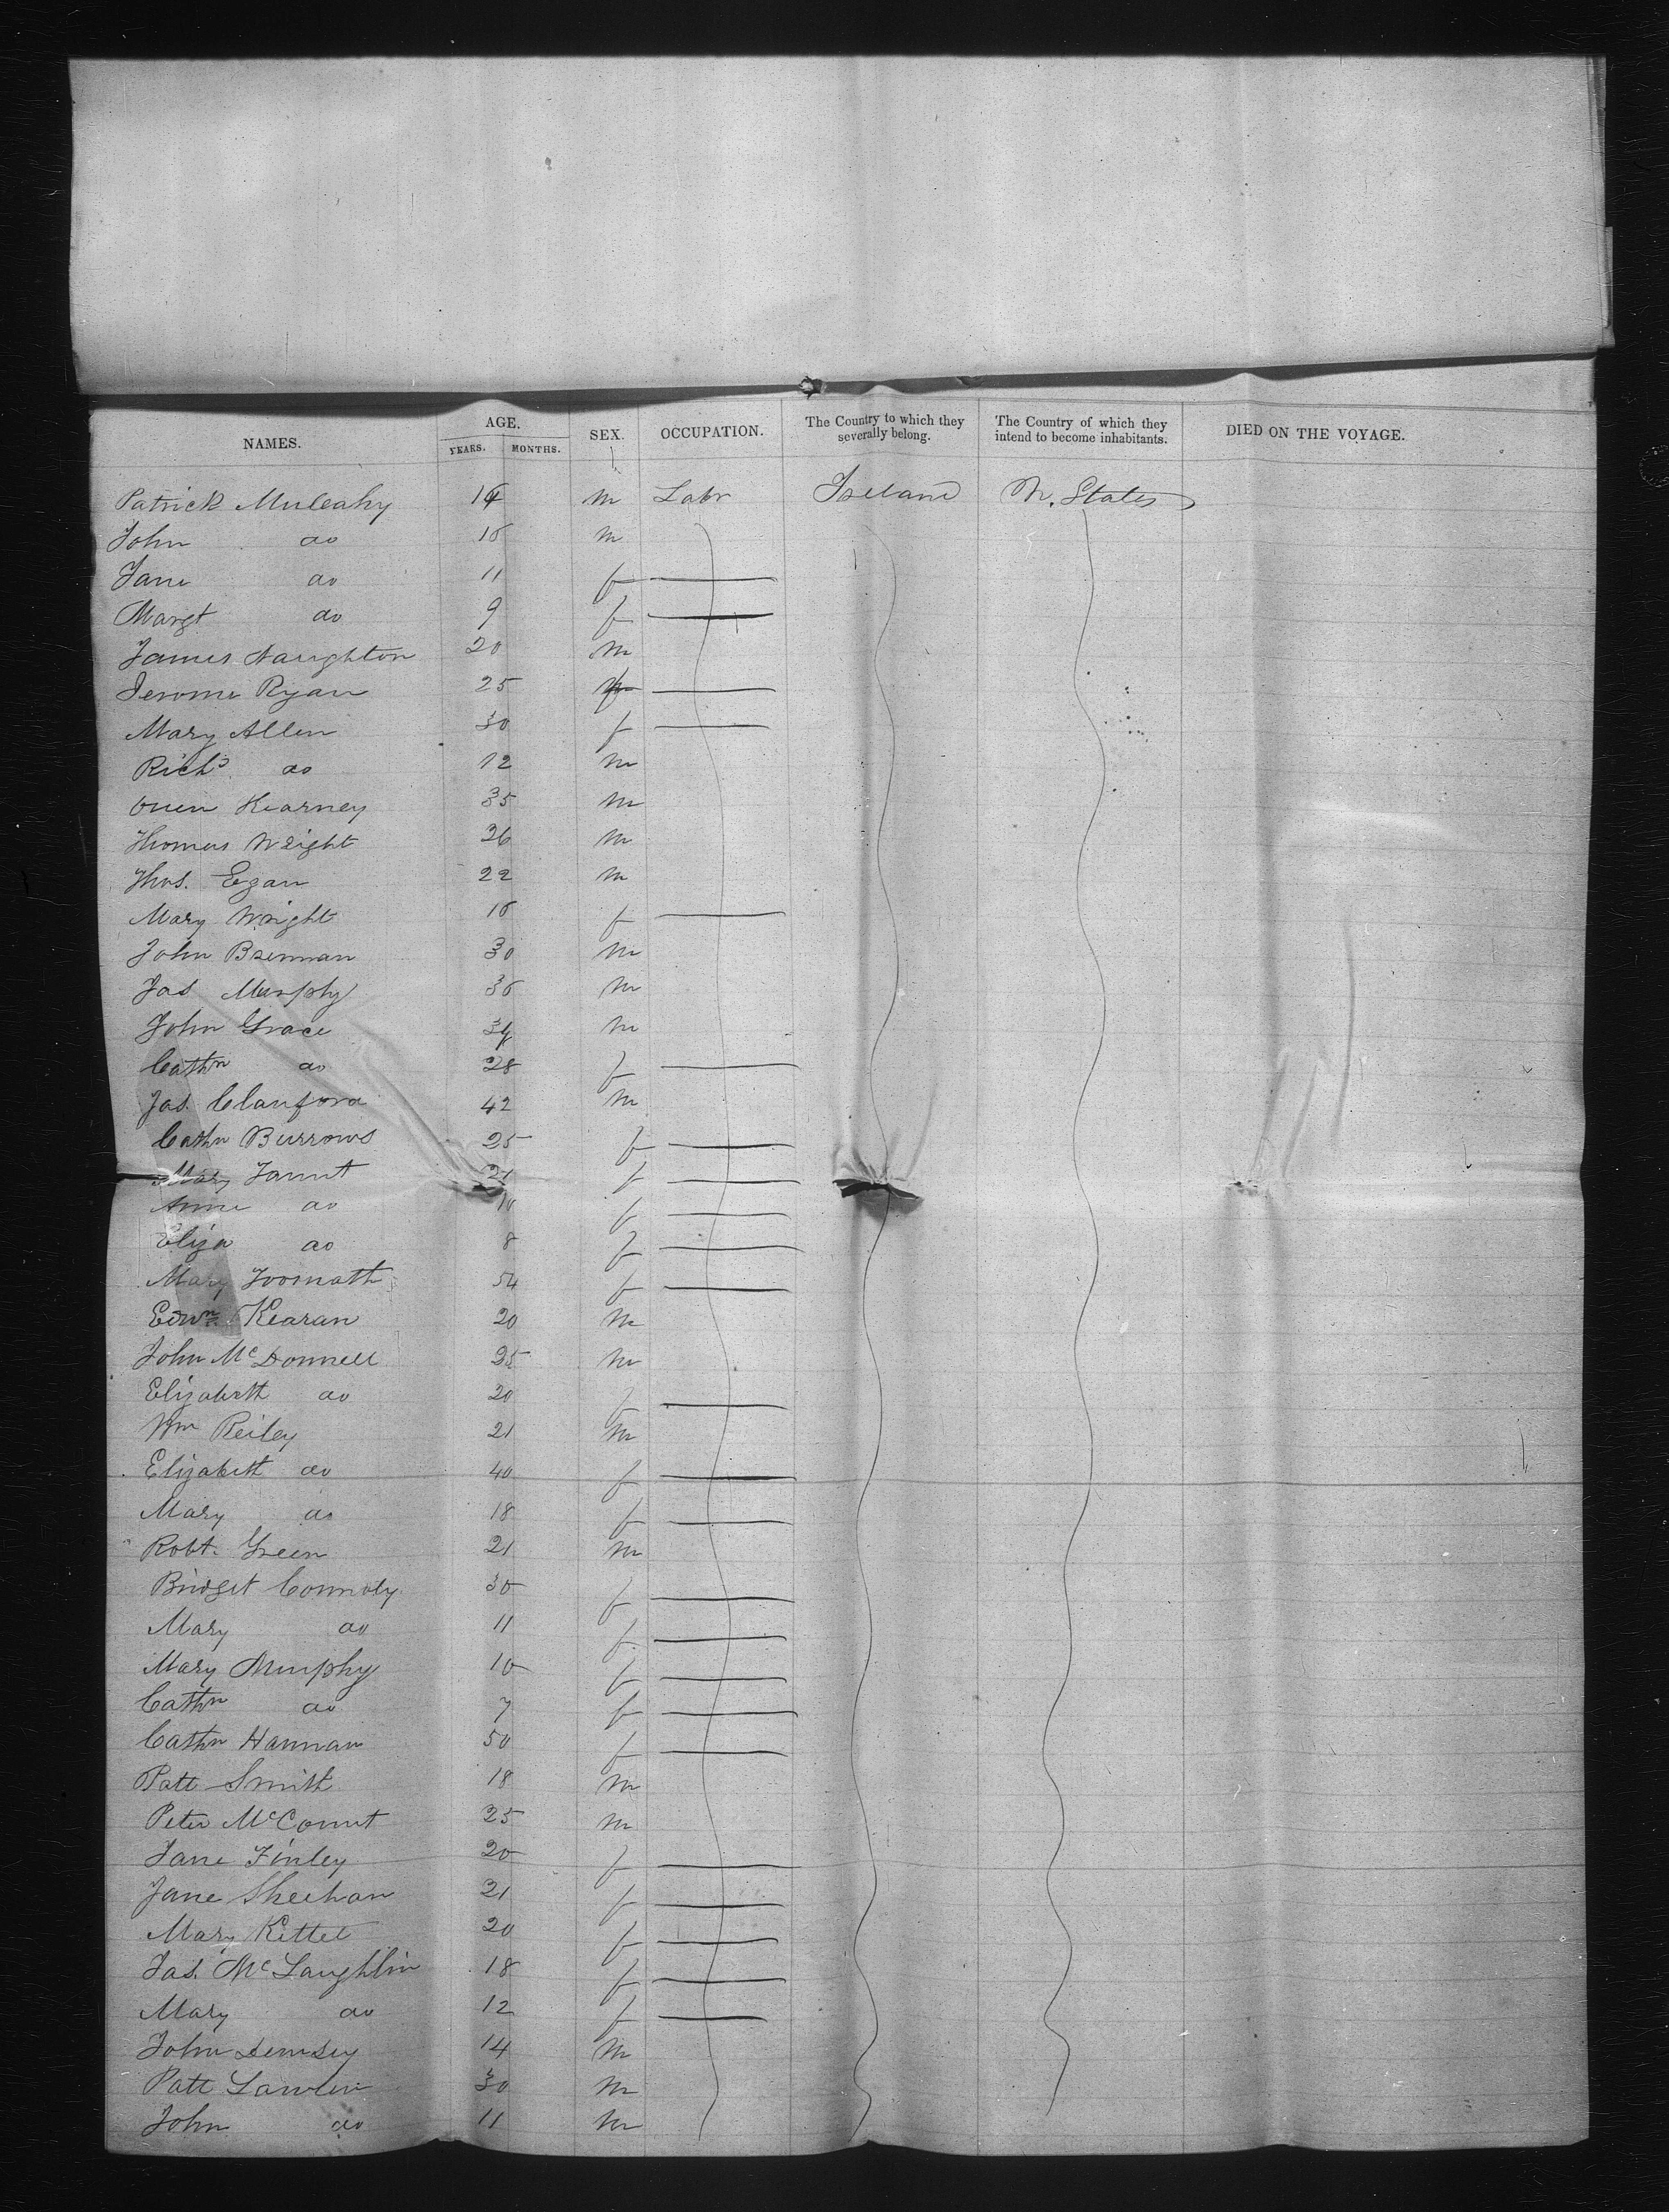 NAMES. AGE. YEARS. MONTHS. SEX. OCCUPATION. The Country to which they severally belong. The Country of which they intend to become inhabitants. DIED ON THE VOYAGE.
Patrick Mulcahy 14 m Labr Ireland U. States
John do 16 m
Jane do 11 f
Margt do 9 f
James Naughton 20 m
Jerome Ryan 25
Mary Allen 30 f
Richd do 12 m
Owen Kearney 35 m
Thomas Wright 26 m
Thos. Egan 22 m
Mary Wright 16 f
John Brennan 30 m
Jas Murphy 36 m
John Grace 34 m
Cathn do 28 f
Jas. Clanford 42 m
Cathn Burrows 25 f
Mary Jaunt 21 f
Anne do 10 f
Eliza do 8 f
Mary 54 f
Edwn Kearan 20 m
John McDonnell 25 m
Elizabeth do 20 f
Wm Reiley 21 m
Elizabeth do 40 f
Mary do 18 f
Robt. Green 21 m
Bridget Connoly 30 f
Mary do 11 f
Mary Murphy 10 f
Cathn do 7 f
Cathn Hannan 50 f
Patt Smith 18 m
Peter McCount 25 m
Jane Finley 20 f
Jane Sheehan 21 f
Mary Kettel 20 f
Jas. McLaughlin 18 f
Mary do 12 f
John Demsey 14 m
Patt Lawler 30 m
John do 11 m